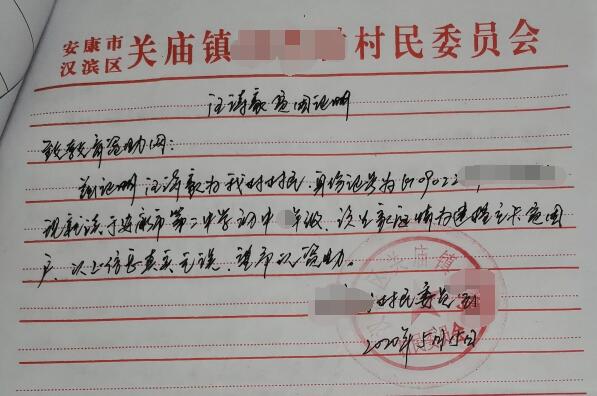 安康市
汉滨区 关庙镇 村民委员会
汪涛家庭贫困证明
致教育资助网:
兹证明汪涛家为我村村民,身份证号为6109022 ,
现就读于安康市第二中学初中 年级,该生家庭情为建档立卡贫困
户。以上信息真实无误,望帮以资助。
村民委员会
2020年5月15日
关庙镇